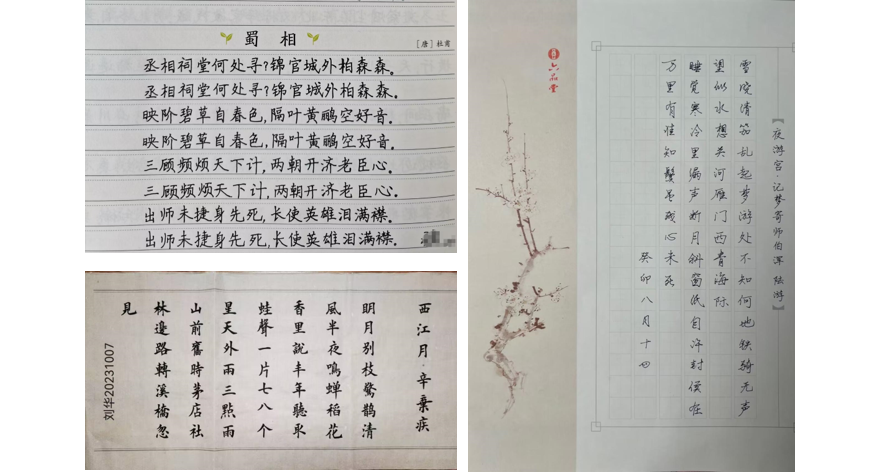 蜀 相
[唐] 杜甫
丞相祠堂何处寻?锦官城外柏森森。
丞相祠堂何处寻?锦官城外柏森森。
映阶碧草自春色,隔叶黄鹂空好音。
映阶碧草自春色,隔叶黄鹂空好音。
三顾频烦天下计,两朝开济老臣心。
三顾频烦天下计,两朝开济老臣心。
出师未捷身先死,长使英雄泪满襟。
出师未捷身先死,长使英雄泪满襟。
西江月·辛棄疾
明月别枝驚鹊清
風半夜鳴蝉稻花
香里說丰年聽取
蛙聲一片七八个
星天外兩三點雨
山前舊時茅店社
林邊路轉溪橋忽
見
刘华20231007
六品堂
《夜游宫·记梦寄师伯浑 陆游》
雪晓清笳乱起梦游处不知何地铁骑无声
望似水想关河雁门西青海际
睡觉寒冷里漏声断月斜窗纸自许封侯在
万里有谁知鬓虽残心未死
癸卯八月十四